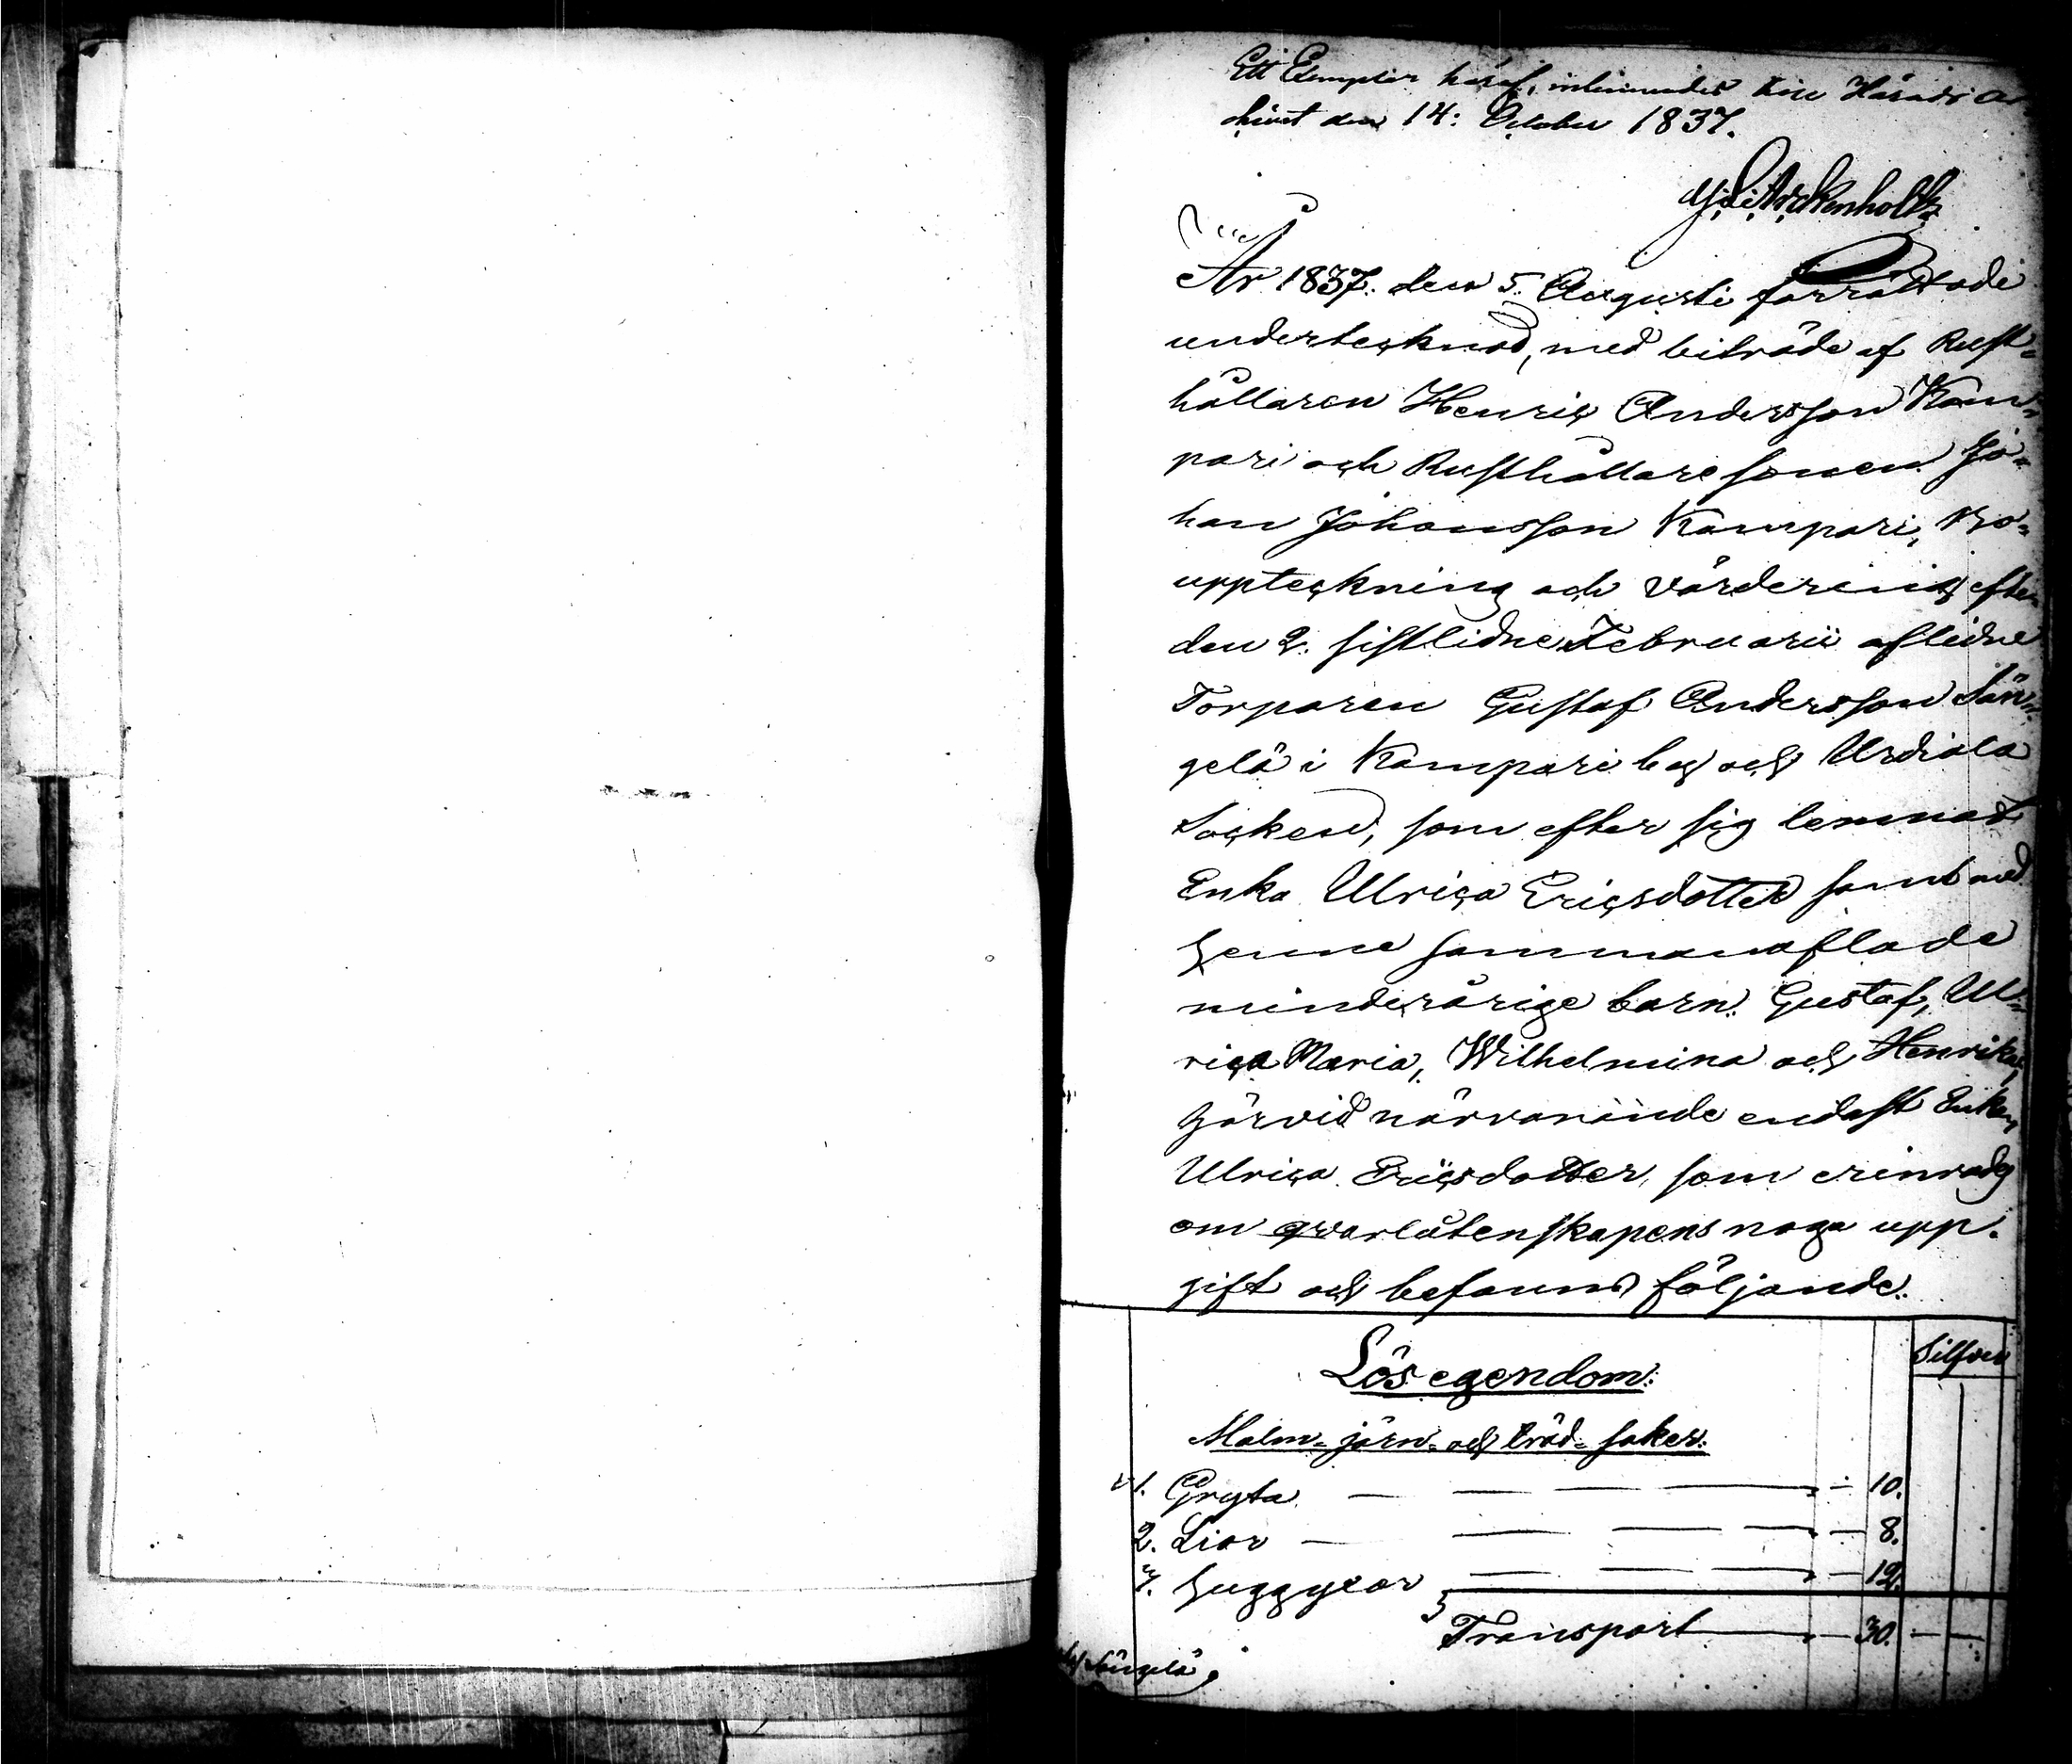 Ett Exemplar häraf, inlemnades till Härads Ar-
chivet den 14: October 1837.
Arckenholtz
År 1837. den 5. Augusti förrättade
underteçknad, med biträde af Rust-
hållaren Henriç Andersson Kam-
pari och Rusthållaresonen Jo-
han Johansson Kampari, Bo-
uppteçkning och värdering efter
den 2. sistlidne Februarii aflidne
Torparen Gustaf Andersson Sän-
gelä i Kampari by och Urdiala
Soçken, som efter sig lemnat
Enka Ulriça Eriçsdotter samt med
henne sammanaflade
minderårige barn: Gustaf, Ul-
riça Maria, Wilhelmina och Henrika,
härvid närvarande endast Enkan
Ulriça Eriçsdotter, som erinrades
om qvarlåtenskapens noga upp-
gift och befanns följande:
Silfver
Lös egendom:
Malm- järn- och träd- saker:
1. Gryta — — — — — 10.
2. Liar — — — — — 8.
3. Huggyxor — — — — 12.
Transport — — 30. — —
Sängelä